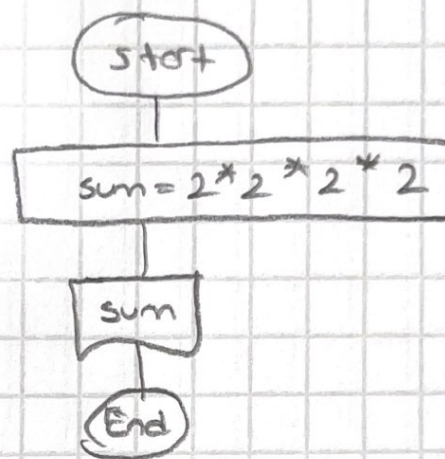 start
sum = 2 * 2 * 2 * 2
sum
End